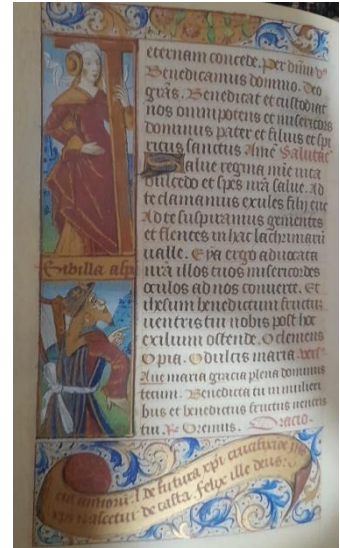 eternam concede. Per dn̄m ꝛc̄
Benedicamus domino. Deo
grās. Benedicat et custodiat
nos omnipotens et misericors
dominus pater et filius et spi
ritus sanctus Amē Salutatio
Salue regina mīe uita
dulcedo et spes nr̄a salue. Ad
te clamamus exules filij eue
Ad te suspiramus gementes
et flentes in hac lachrimarū
ualle. Eya ergo aduocata
nr̄a illos tuos misericordes
oculos ad nos conuerte. Et
ihesum benedictum fructū
uentris tui nobis post hoc
exilium ostende. O clemens
O pia. O dulcis maria. vers᷒
Aue maria gracia plena dominus
tecum. Benedicta tu in mulieri
bus et benedictus fructus uentris
tui. ℟ Oremus. Oracio.
Sibilla
de futura xp̄i
nascetur de casta. felix ille deus